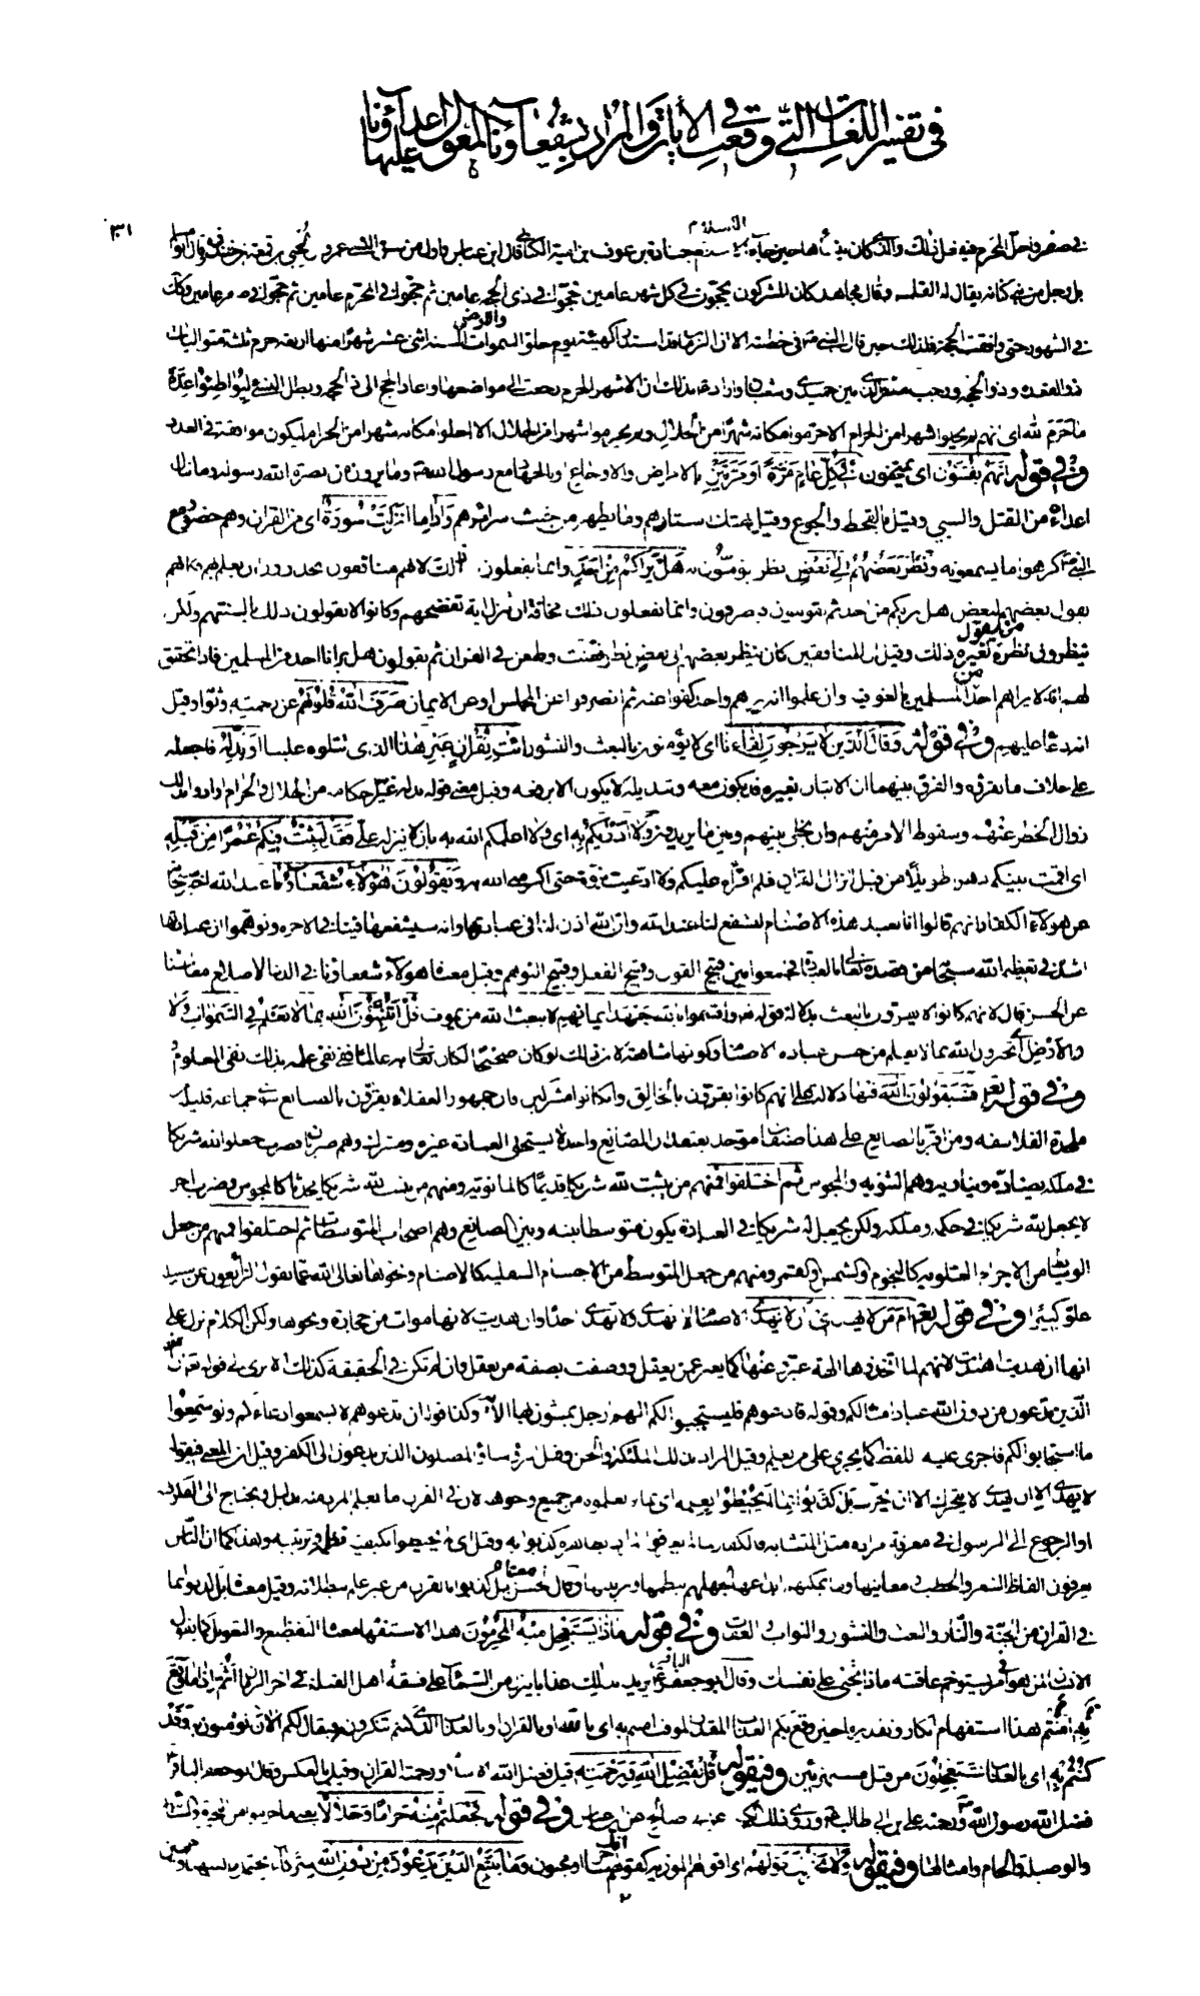 في تفسير اللغات التي وقعت في الأيات والمراد بشفعاؤنا المعول عليها أعداؤنا
٣١
في صفر وحل المحرم فيه فلذلك والذي كان ينسأها حين جاء الاسلام جنادة بن عوف بن امية الكناني قال ابن عباس واول من سن النسئ عمرو بن لحي بن قمعة بن خندف وقال ابو مسلم
بل رجل من بني كنانة يقال له القلمس وقال مجاهد كان المشركون يحجون في كل شهر عامين فحجوا في ذي الحجة عامين ثم حجوا في المحرم عامين ثم حجوا في صفر عامين وكذلك
في الشهور حتى وافقت الحجة فلذلك حين قال النبي في خطبته الا ان الزمان قد استدار كهيئة يوم خلق السموات والارض السنة اثنى عشر شهرا منها اربعة حرم ثلثة متواليات
ذو القعدة وذو الحجة ورجب مضر الذي بين جمادى وشعبان اراد بذلك ان الاشهر الحرم رجعت الى مواضعها وعاد الحج الى ذي الحجة وبطل النسئ ليواطئوا عدة
ما حرم الله اي انهم لم يحلوا شهرا من الحرام الا حرموا مكانه شهرا من الحلال ولم يحرموا شهرا من الحلال الا احلوا مكانه شهرا من الحرام ليكون موافقة في العدد
وفي قوله انهم يفتنون اي يمتحنون في كل عام مرة او مرتين بالامراض والاوجاع وبالجهاد مع رسول الله وما يرون من نصرة الله رسوله وما نال
اعداءه من القتل والسبي وقيل بالقحط والجوع وقيل بهتك استارهم وما يظهر من خبث سرائرهم واذا ما انزلت سورة اي من القران وهم حضور مع
النبي كرهوا ما يسمعونه ونظر بعضهم الى بعض نظر يؤمنون به هل يراكم من احد وانما يفعلون ذلك لانهم منافقون يحذرون ان يعلم بهم فكانهم
يقول بعضهم لبعض هل يريكم من احد ثم يقومون فينصرفون وانما يفعلون ذلك مخافة ان تنزل اية تفضحهم وكانوا لا يقولون ذلك بالسنتهم ولكن
ينظرون نظرة من يقول لغيره ذلك وقيل ان المنافقين كان ينظر بعضهم الى بعض نظر تعنت وطعن في القران ثم يقولون هل يرانا احد من المسلمين فاذا تحقق
لهم انه لا يراهم احد من المسلمين بالغوا فيه وان علموا انه يريهم واحد كفوا عنه ثم انصرفوا عن المجلس او عن الايمان صرف الله قلوبهم عن رحمته وثوابه وقيل
انه دعا عليهم وفي قوله وقال الذين لا يرجون لقاءنا اي لا يؤمنون بالبعث والنشور ائت بقران غير هذا الذي تتلوه علينا او بدله فاجعله
على خلاف ما تقرؤه والفرق بينهما ان الاتيان بغيره قد يكون معه وتبديله لا يكون الا برفعه وقيل معنى قوله بدله غير احكامه من الحلال والحرام ارادوا بذلك
زوال الخطر عنهم وسقوط الامر منهم وان يخلى بينهم وبين ما يريدونه ولا ادريكم به اي ولا اعلمكم الله به بان لا ينزله علي فقد لبثت فيكم عمرا من قبله
اي اقمت بينكم دهرا طويلا من قبل انزال القران فلم اقرأه عليكم ولا ادعيت نبوة حتى اكرمني الله به ويقولون هؤلاء شفعاؤنا عند الله اخبر سبحانه
عن هؤلاء الكفار انهم قالوا انا نعبد هذه الاصنام لتشفع لنا عند الله وان الله اذن لنا في عبادتها وانه سيشفعها فينا في الاخرة وتوهموا ان عبادتها
اشد في تعظيم الله سبحانه من قصده تعالى بالعبادة فجمعوا بين قبح القول وقبح الفعل وقبح التوهم وقيل معناه هؤلاء شفعاؤنا في الدنيا لاصلاح معاشنا
عن الحسن قال لانهم كانوا لا يقرون بالبعث بدلالة قوله واقسموا بالله جهد ايمانهم لا يبعث الله من يموت قل اتنبئون الله بما لا يعلم في السموات ولا
في الارض اي تخبرون الله بما لا يعلم من حسن عبادة الاصنام وكونها شافعة لان ذلك لو كان صحيحا لكان تعالى به عالما ففي نفي علمه بذلك نفي المعلوم
وفي قوله فسيقولون الله فيها دلالة على انهم كانوا يقرون بالخالق وان كانوا مشركين فان جمهور العقلاء يقرون بالصانع سوى جماعة قليلة من
ملحدة الفلاسفة ومن اقر بالصانع على هذا صنفان موحد يعتقد ان الصانع واحد لا يستحق العبادة غيره ومشرك وهم ضربان فضرب جعلوا لله شريكا
في ملكه يضاده ويناويه وهم الثنوية والمجوس ثم اختلفوا فمنهم من يثبت لله شريكا قديما كالمانوية ومنهم من يثبت لله شريكا محدثا كالمجوس وضرب اخر
لا يجعل لله شريكا في حكمه وملكه ولكن يجعل له شريكا في العبادة يكون متوسطا بينه وبين الصانع وهم اصحاب المتوسطات ثم اختلفوا فمنهم من جعل
الوسائط من الاجرام العلوية كالنجوم والشمس والقمر ومنهم من جعل المتوسط من الاجسام السفلية كالاصنام ونحوها تعالى الله عما يقول الزايغون عن سبيله
علوا كبيرا وفي قوله امن لا يهدي الاصنام لا تهتدي ولا تهدي احدا وان هديت لانها موات من حجارة ونحوها ولكن الكلام نزل على
انها ان هديت اهتدت لانهم لما اتخذوها الهة عبر عنها كما يعبر عمن يعقل ووصفت بصفة من يعقل وان لم تكن في الحقيقة كذلك الا ترى الى قوله ان
الذين تدعون من دون الله عباد امثالكم وقوله فادعوهم فليستجيبوا لكم الهم ارجل يمشون بها الاية وكذا قوله ان تدعوهم لا يسمعوا دعاءكم ولو سمعوا
ما استجابوا لكم فاجرى عليه اللفظ كما يجري على من يعلم وقيل المراد بذلك الملائكة والجن وقيل الرؤساء المضلون الذين يدعون الى الكفر وقيل ان المعنى فيقول
لا يهدي الا ان يهدى لا يتحرك الا ان يحرك بل كذبوا بما لم يحيطوا بعلمه اي بما لم يعلموه من جميع وجوهه لان في القران ما يعلم المراد منه بدليل ويحتاج الى الفكر فيه
او الرجوع الى الرسول في معرفة مراده مثل المتشابه فالكفار لما لم يعرفوا المراد بظاهره كذبوا به وقيل اي لم يحيطوا بكيفية نظمه وترتيبه وهذا كما ان الناس
يعرفون الفاظ الشعر والخطب ومعانيها وما يمكنهم ابداعها لجهلهم بنظمها وترتيبها وقال الحسن معناه بل كذبوا بالقران من غير علم ببطلانه وقيل معناه بل كذبوا بما
في القران من الجنة والنار والبعث والنشور والثواب والعقاب وفي قوله ماذا يستعجل منه المجرمون هذا الاستفهام معناه التفظيع والتهويل كما يقول
الانسان لمن هو في امر يستوخم عاقبته ماذا تجني على نفسك وقال ابو جعفر الباقر يريد بذلك عذابا ينزل من السماء على فسقة اهل القبلة في اخر الزمان أثم اذا ما وقع
امنتم به هذا استفهام انكار وتقديره احين وقع بكم العذاب المقدر الموقت امنتم به اي بالله او بالقران او بالعذاب الذي كنتم تنكرونه فيقال لكم الان تؤمنون به وقد
كنتم به اي بالعذاب تستعجلون من قبل مستهزئين وفي قوله قل بفضل الله وبرحمته قيل فضل الله الاسلام ورحمته القران وقيل بالعكس وقال ابو جعفر الباقر
فضل الله رسول الله ورحمته علي بن ابي طالب وروى ذلك الكلبي عن ابي صالح عن ابن عباس وفي قوله فجعلتم منه حراما وحلالا يعني ما حرموا من البحيرة والسائبة
والوصيلة والحام وامثالها وفي قوله ولا يحزنك قولهم اي اقوالهم الموذية كقولهم انك ساحر او مجنون وما يتبع الذين يدعون من دون الله شركاء يحتمل ما